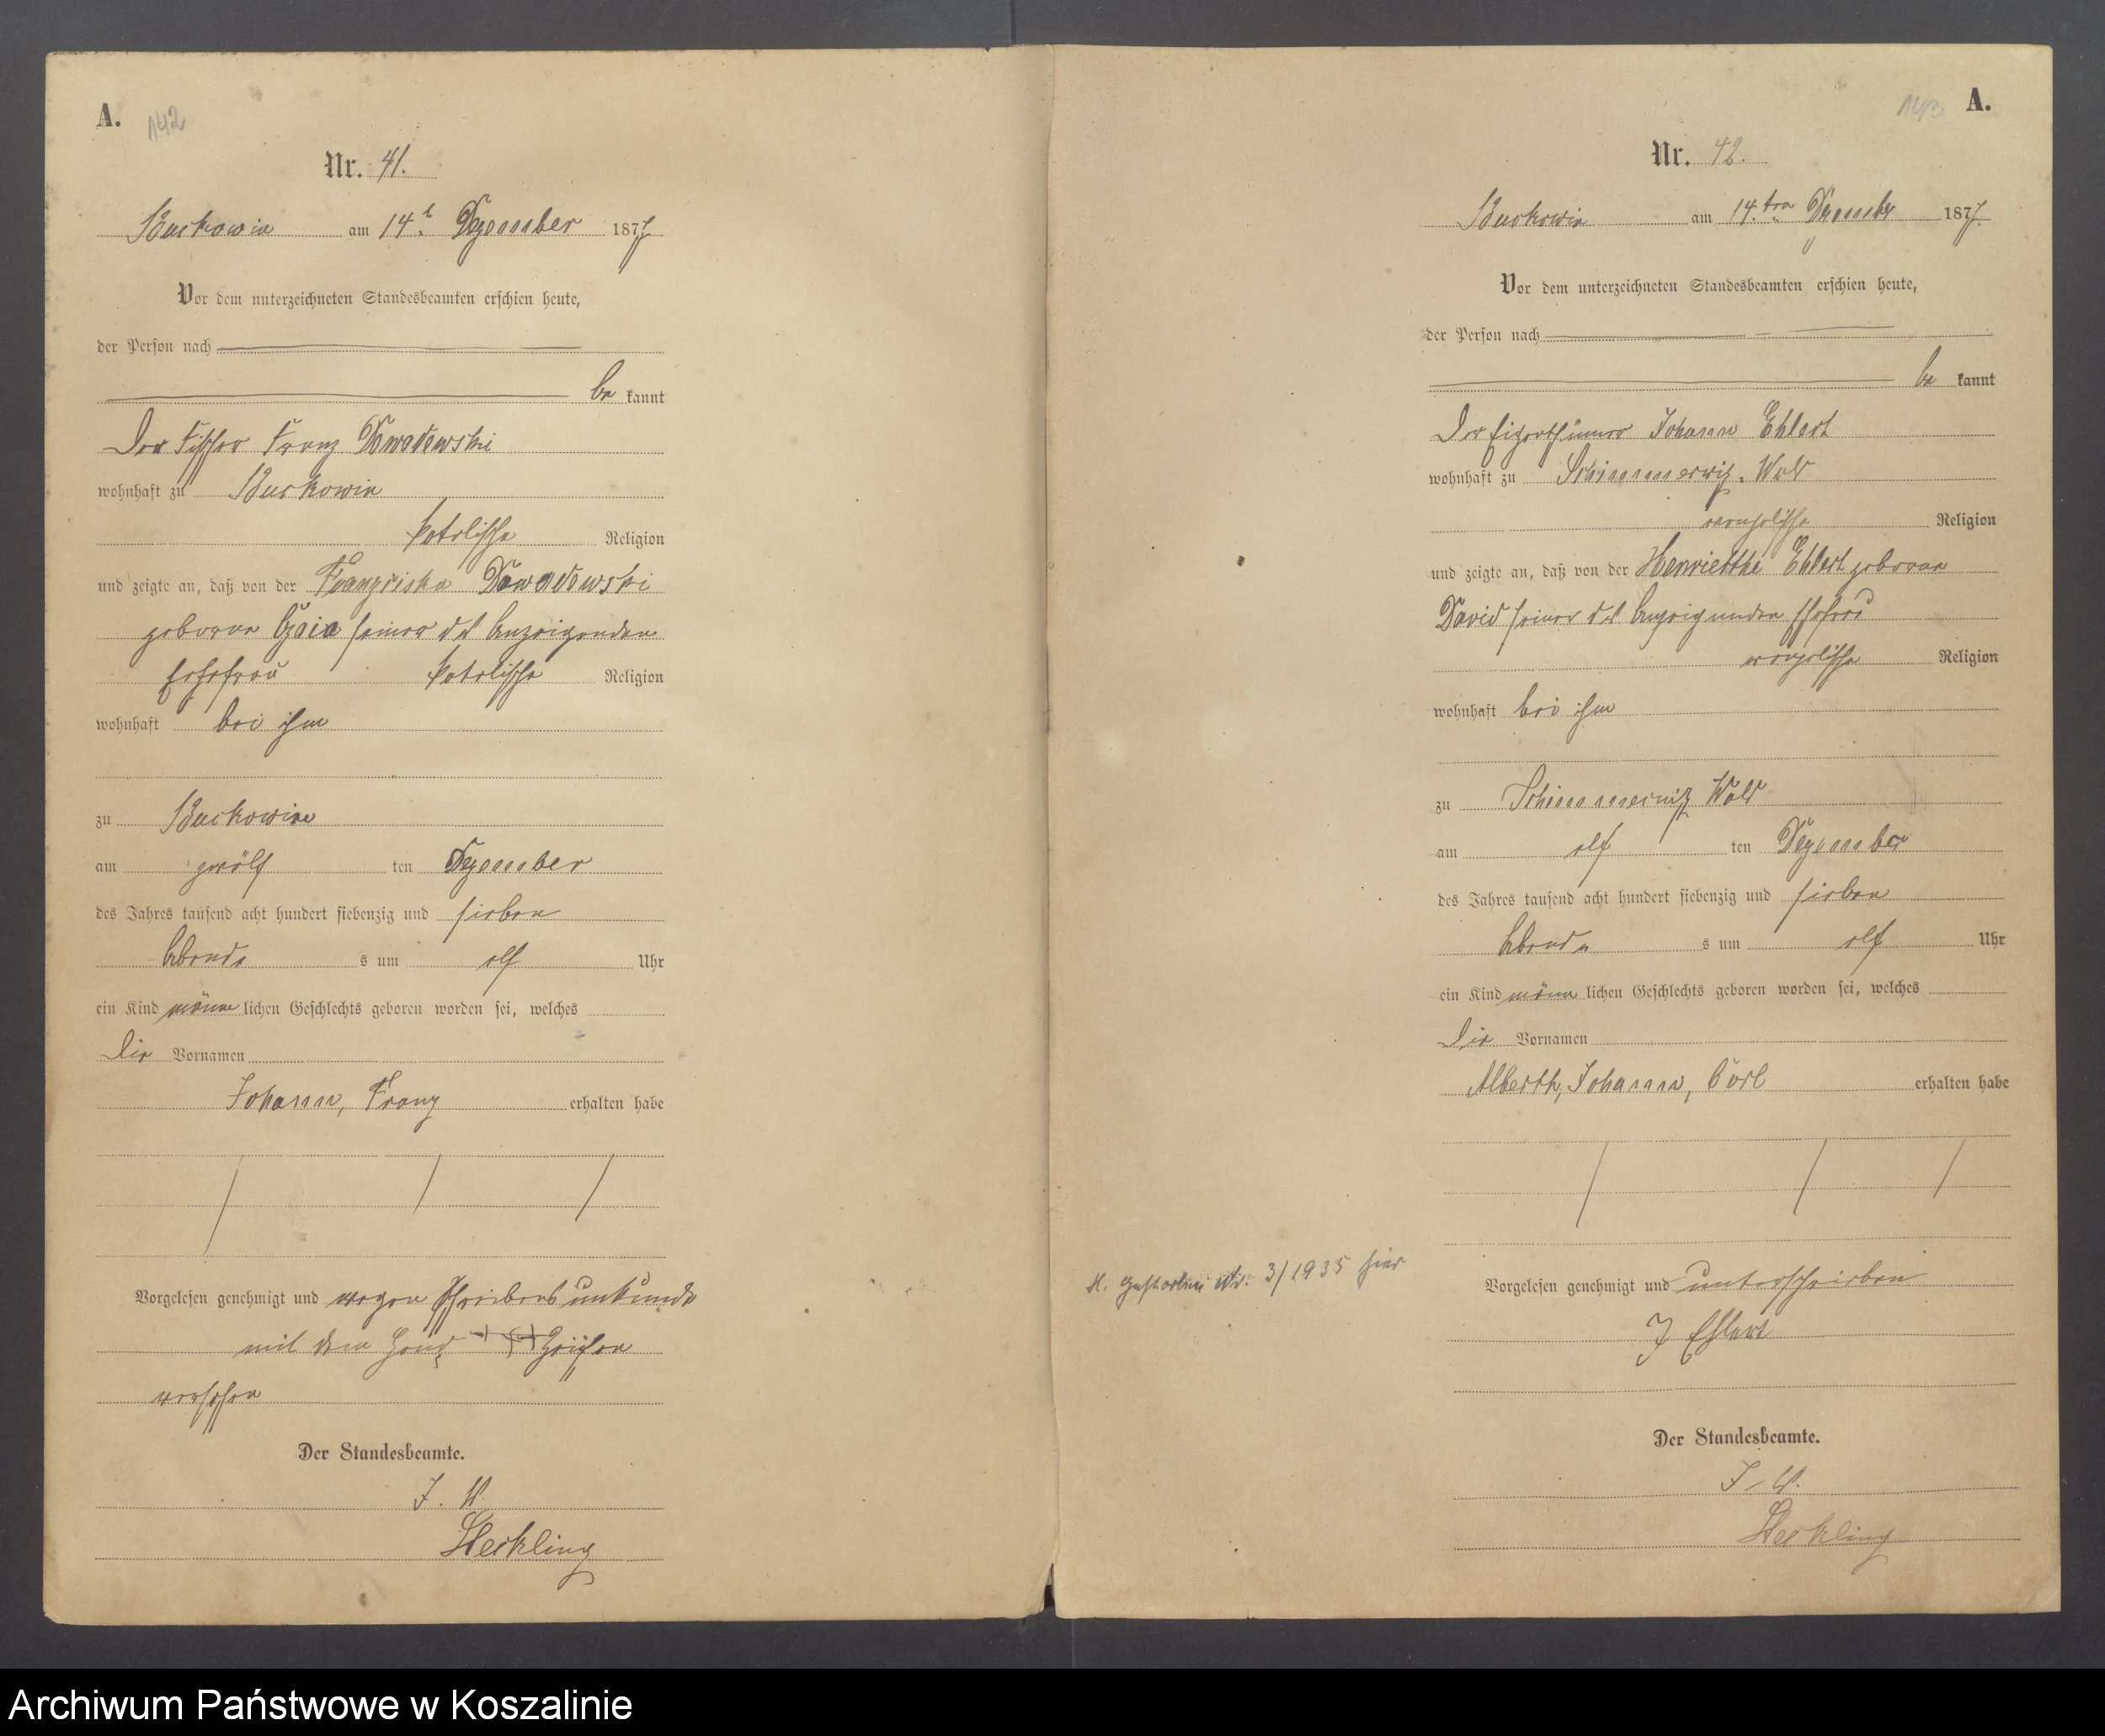 A. 142
Nr. 41.
Buckowin am 14t. Dezember 1877
Vor dem unterzeichneten Standesbeamten erschien heute,
der Person nach
be kannt
Der Fischer Franz
wohnhaft zu Buckowin
katolischer Religion
und zeigte an, daß von der Franziska
geborene seiner des Anzeigenden
Ehefrau katolischer Religion
wohnhaft bei ihm
zu Buckowin
am zwölf ten Dezember
des Jahres tausend acht hundert siebenzig und sieben
Abends s um elf Uhr
ein Kind männ lichen Geschlechts geboren worden sei, welches
die Vornamen
Johann, Franz erhalten habe
Vorgelesen genehmigt und wegen Schreibensunkunde
mit dem Hand Zeichen
versehen
Der Standesbeamte.
J. V.
Steckling
143 A.
Nr. 42.
Buckowin am 14.ten Dezember 1877.
Vor dem unterzeichneten Standesbeamten erschien heute,
der Person nach
be kannt
Der Eigenthümer Johann Ehlert
wohnhaft zu Schimmerwitz Wald
evangelischer Religion
und zeigte an, daß von der Henrietthe Ehlert geborene
David seiner des Anzeigenden Ehefrau
evangelischer Religion
wohnhaft bei ihm
zu Schimmerwitz Wald
am elf ten Dezember
des Jahres tausend acht hundert siebenzig und sieben
Abends s um elf Uhr
ein Kind männ lichen Geschlechts geboren worden sei, welches
die Vornamen
Alberth, Johann, Carl erhalten habe
Vorgelesen genehmigt und unterschrieben
J Ehlert
Der Standesbeamte.
J. V.
Steckling
H. gestorben Nr. 3/1935 hier
Archiwum Państwowe w Koszalinie